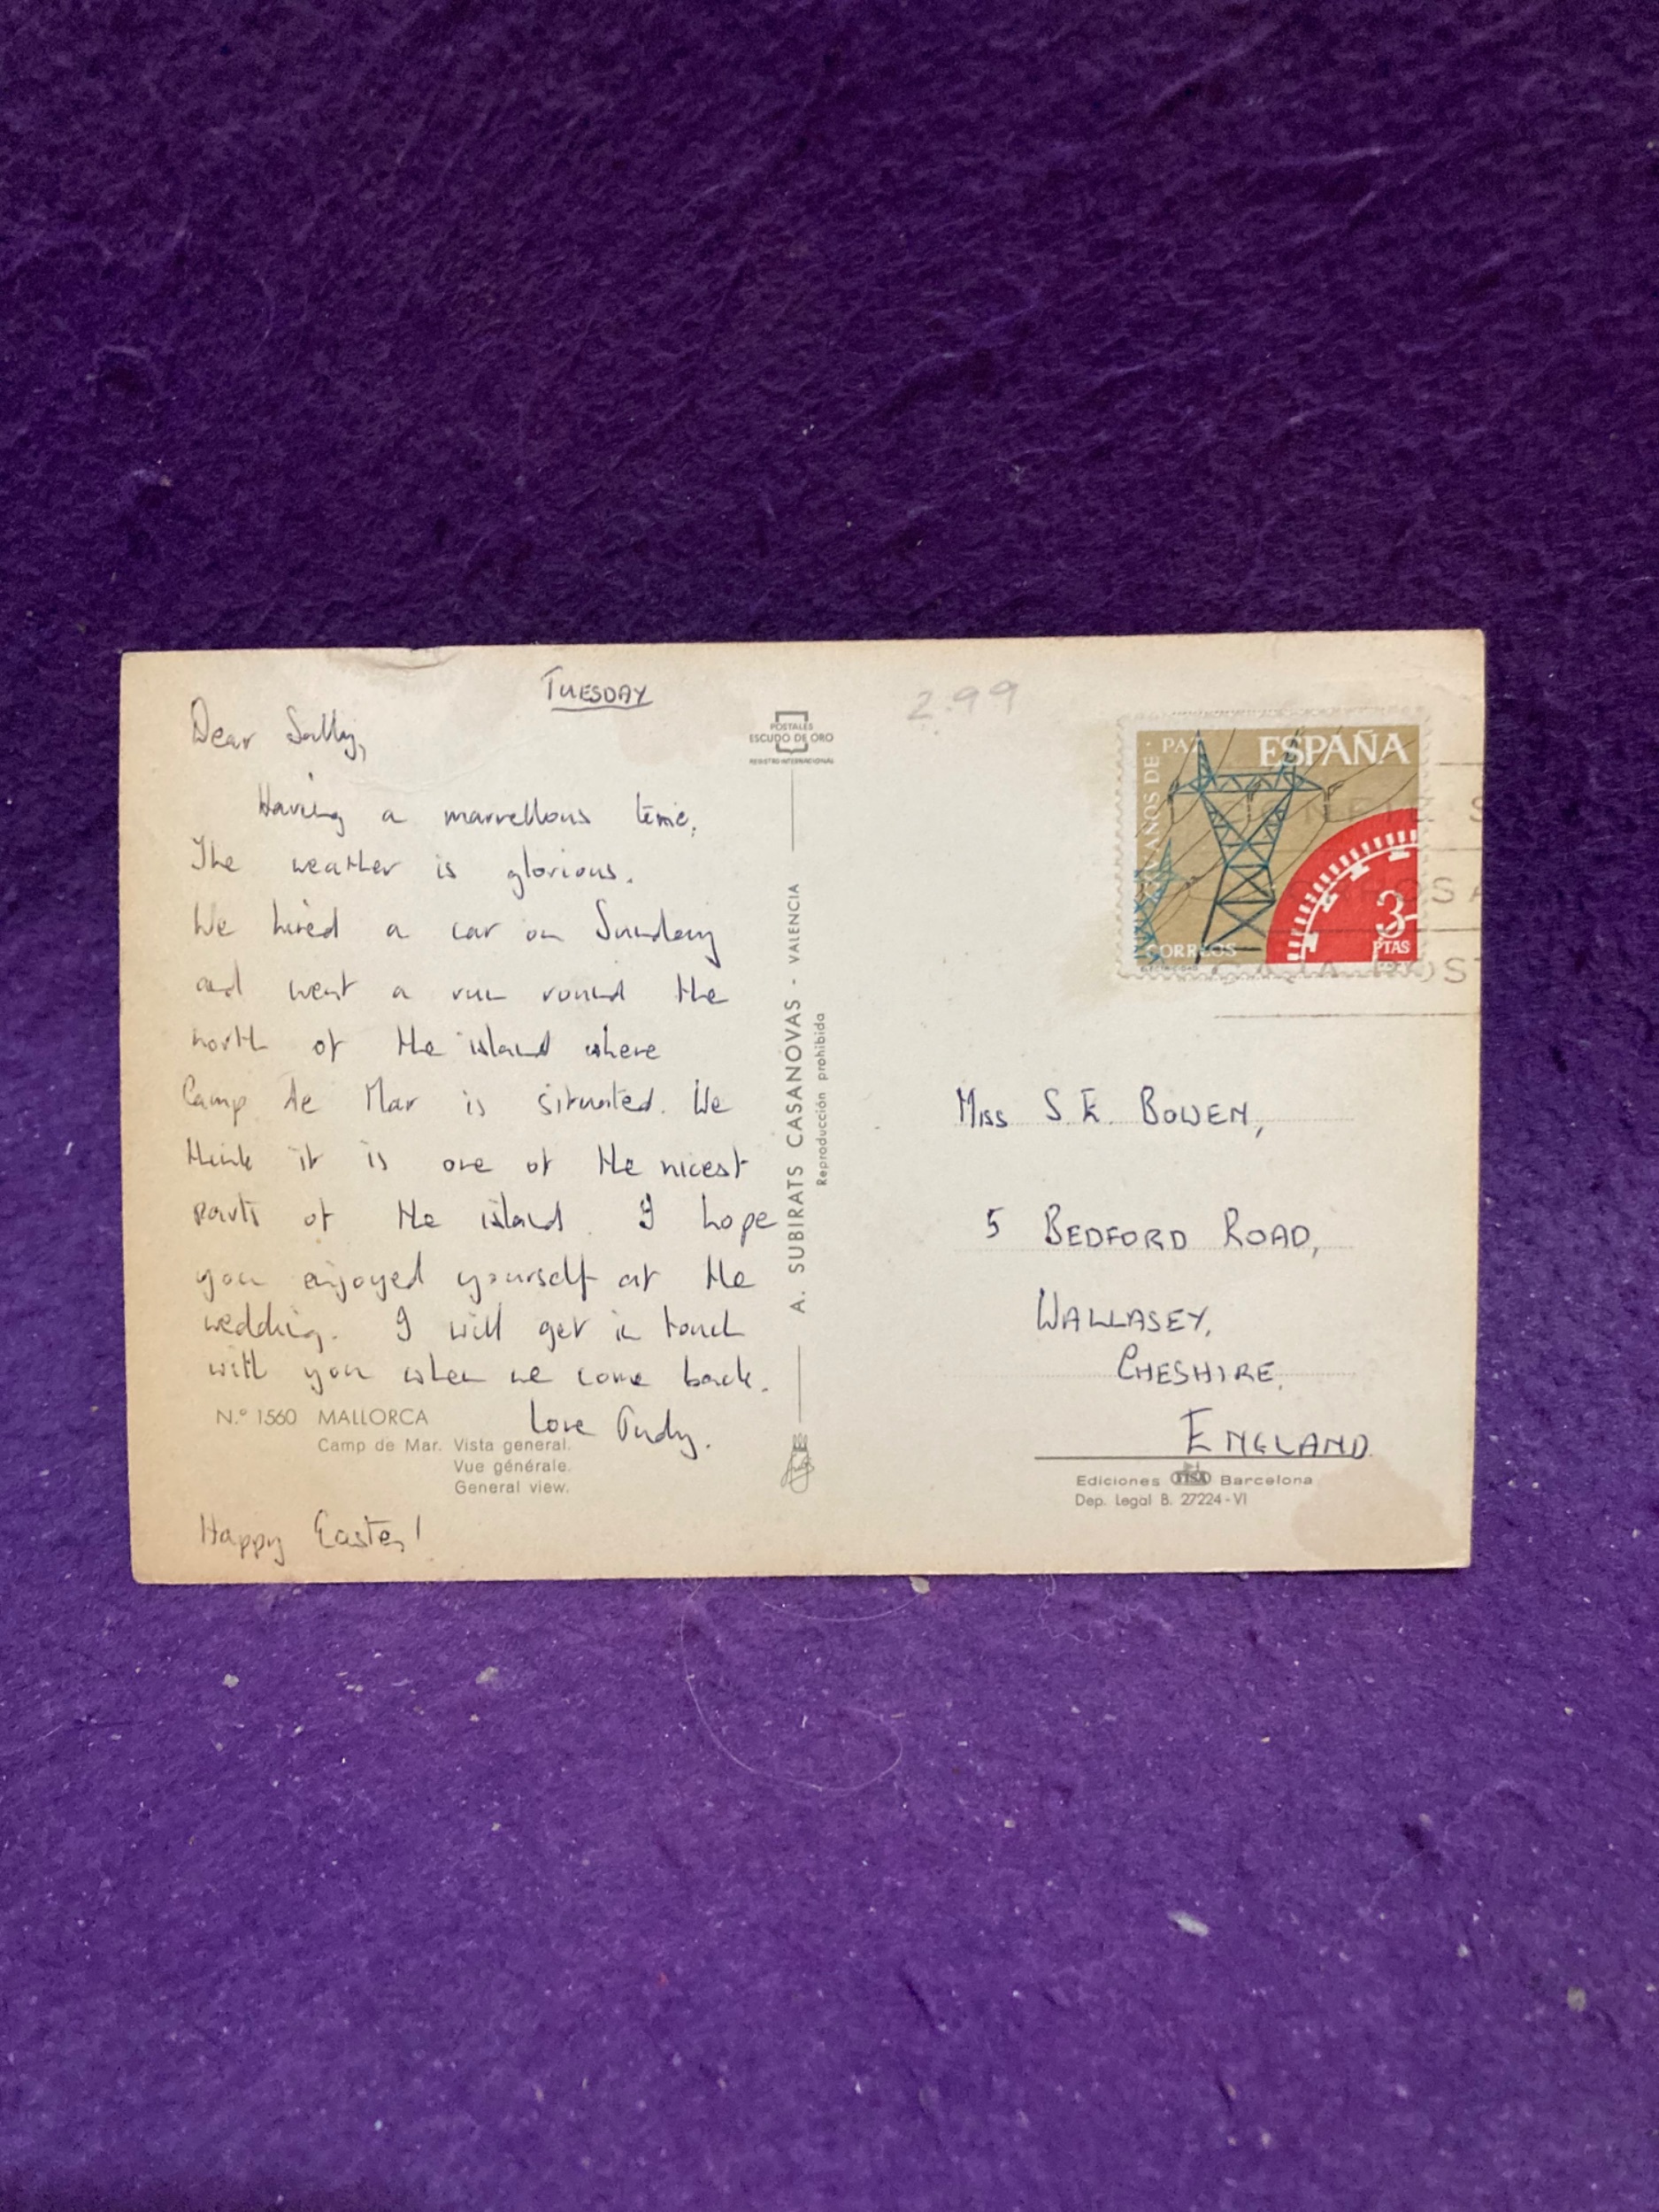 TUESDAY
Dear Sally,
Having a marvellous time.
The weather is glorious.
We hired a car on Sunday
and went a run round the
north of the island where
Camp de Mar is situated. We
think it is one of the nicest
parts of the island. I hope
you enjoyed yourself at the
wedding. I will get in touch
with you when we come back.
Love Judy.
N.º 1560 MALLORCA
Camp de Mar. Vista general.
Vue générale.
General view.
Happy Easter!
POSTALES
ESCUDO DE ORO
REGISTRO INTERNACIONAL
A. SUBIRATS CASANOVAS - VALENCIA
Reproducción prohibida
2.99
ESPAÑA
XXV AÑOS DE PAZ
CORREOS
3
PTAS
ELECTRICIDAD
MISS S.E. BOWEN,
5 BEDFORD ROAD,
WALLASEY,
CHESHIRE.
ENGLAND.
Ediciones FISA Barcelona
Dep. Legal B. 27224-VI